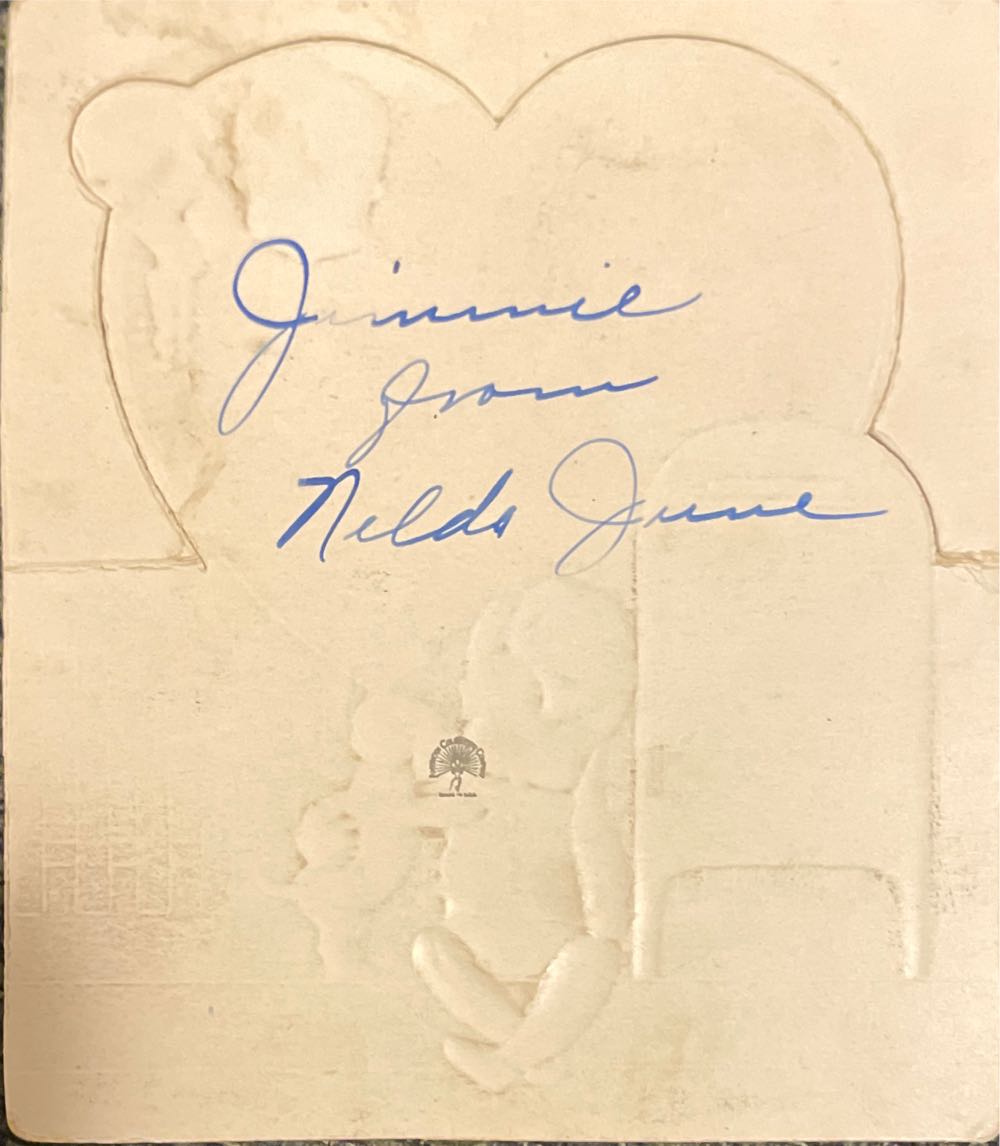 Jimmie
from
Nelda June